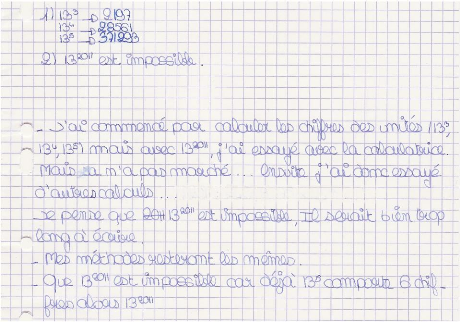 1) 13³ → 2197
13⁴ → 28561
13⁵ → 371293
2) 13²⁰¹¹ est impossible.
- J'ai commencé par calculer les chiffres des unités (13³,
13⁴, 13⁵) mais avec 13²⁰¹¹, j'ai essayé avec la calculatrice.
Mais sa m'a pas marché... ensuite j'ai donc essayé
d'autres calculs...
- Je pense que 13²⁰¹¹ est impossible, Il serait bien trop
long à écrire.
- Mes méthodes resteront les mêmes.
- Que 13²⁰¹¹ est impossible car déjà 13⁵ comporte 6 chif-
fres alors 13²⁰¹¹